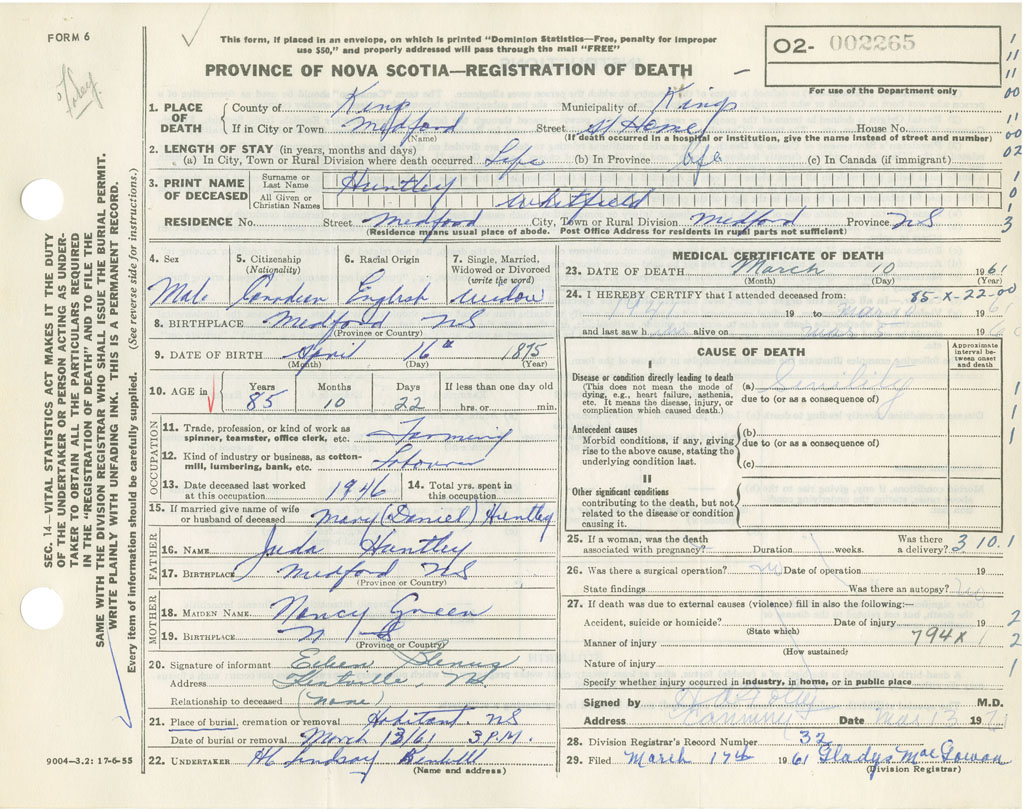 FORM 6
Foley
This form, if placed in an envelope, on which is printed "Dominion Statistics—Free, penalty for improper
use $50," and properly addressed will pass through the mail "FREE"
PROVINCE OF NOVA SCOTIA—REGISTRATION OF DEATH
O2- 002265
For use of the Department only
SEC. 14—VITAL STATISTICS ACT MAKES IT THE DUTY
OF THE UNDERTAKER OR PERSON ACTING AS UNDER-
TAKER TO OBTAIN ALL THE PARTICULARS REQUIRED
IN THE "REGISTRATION OF DEATH" AND TO FILE THE
SAME WITH THE DIVISION REGISTRAR WHO SHALL ISSUE THE BURIAL PERMIT.
WRITE PLAINLY WITH UNFADING INK. THIS IS A PERMANENT RECORD.
Every item of information should be carefully supplied. (See reverse side for instructions.)
1. PLACE OF DEATH County of Kings Municipality of Kings
If in City or Town Medford Street at Home House No.
(Name (If death occurred in a hospital or institution, give the name instead of street and number)
2. LENGTH OF STAY (in years, months and days)
(a) In City, Town or Rural Division where death occurred Life (b) In Province Life (c) In Canada (if immigrant)
3. PRINT NAME OF DECEASED Surname or Last Name Huntley
All Given or Christian Names Whitfield
RESIDENCE No. Street Medford City, Town or Rural Division Medford Province NS
(Residence means usual place of abode. Post Office Address for residents in rural parts not sufficient)
4. Sex 5. Citizenship (Nationality) 6. Racial Origin 7. Single, Married, Widowed or Divorced (write the word)
Male Canadian English Widow
8. BIRTHPLACE Medford NS
(Province or Country)
9. DATE OF BIRTH April 16th 1875
(Month) (Day) (Year)
10. AGE in Years Months Days If less than one day old
85 10 22 hrs. or min.
OCCUPATION
11. Trade, profession, or kind of work as
spinner, teamster, office clerk, etc. Farming
12. Kind of industry or business, as cotton-
mill, lumbering, bank, etc. Labourer
13. Date deceased last worked at this occupation 1946 14. Total yrs. spent in this occupation
15. If married give name of wife
or husband of deceased Mary (Daniel) Huntley
FATHER
16. NAME Juda Huntley
17. BIRTHPLACE Medford NS
(Province or Country)
MOTHER
18. MAIDEN NAME Nancy Green
19. BIRTHPLACE N S
(Province or Country)
20. Signature of informant Eileen
Address Kentville, NS
Relationship to deceased (none)
21. Place of burial, cremation or removal Habitant NS
Date of burial or removal March 13/61 3 P.M.
22. UNDERTAKER H Lindsay Kentville
(Name and address)
9004—3.2: 17-6-55
MEDICAL CERTIFICATE OF DEATH
23. DATE OF DEATH March 10 1961
(Month) (Day) (Year)
24. I HEREBY CERTIFY that I attended deceased from: 85-X-22-00
1941 19 to Mar 10 1961
and last saw h im alive on Mar 5 196
CAUSE OF DEATH
Approximate interval between onset and death
I
Disease or condition directly leading to death
(This does not mean the mode of
dying, e.g., heart failure, asthenia,
etc. It means the disease, injury, or
complication which caused death.)
(a) Senility
due to (or as a consequence of)
Antecedent causes
Morbid conditions, if any, giving
rise to the above cause, stating the
underlying condition last.
(b)
due to (or as a consequence of)
(c)
II
Other significant conditions
contributing to the death, but not
related to the disease or condition
causing it.
25. If a woman, was the death associated with pregnancy? Duration weeks. Was there a delivery? 3 10.1
26. Was there a surgical operation? no Date of operation 19
State findings Was there an autopsy? no
27. If death was due to external causes (violence) fill in also the following:—
Accident, suicide or homicide? Date of injury 19
(State which)
Manner of injury 794X
(How sustained)
Nature of injury
Specify whether injury occurred in industry, in home, or in public place
Signed by M.D.
Address Canning Date Mar 13 19
28. Division Registrar's Record Number 32
29. Filed March 17th 1961 Gladys MacGowan
(Division Registrar)